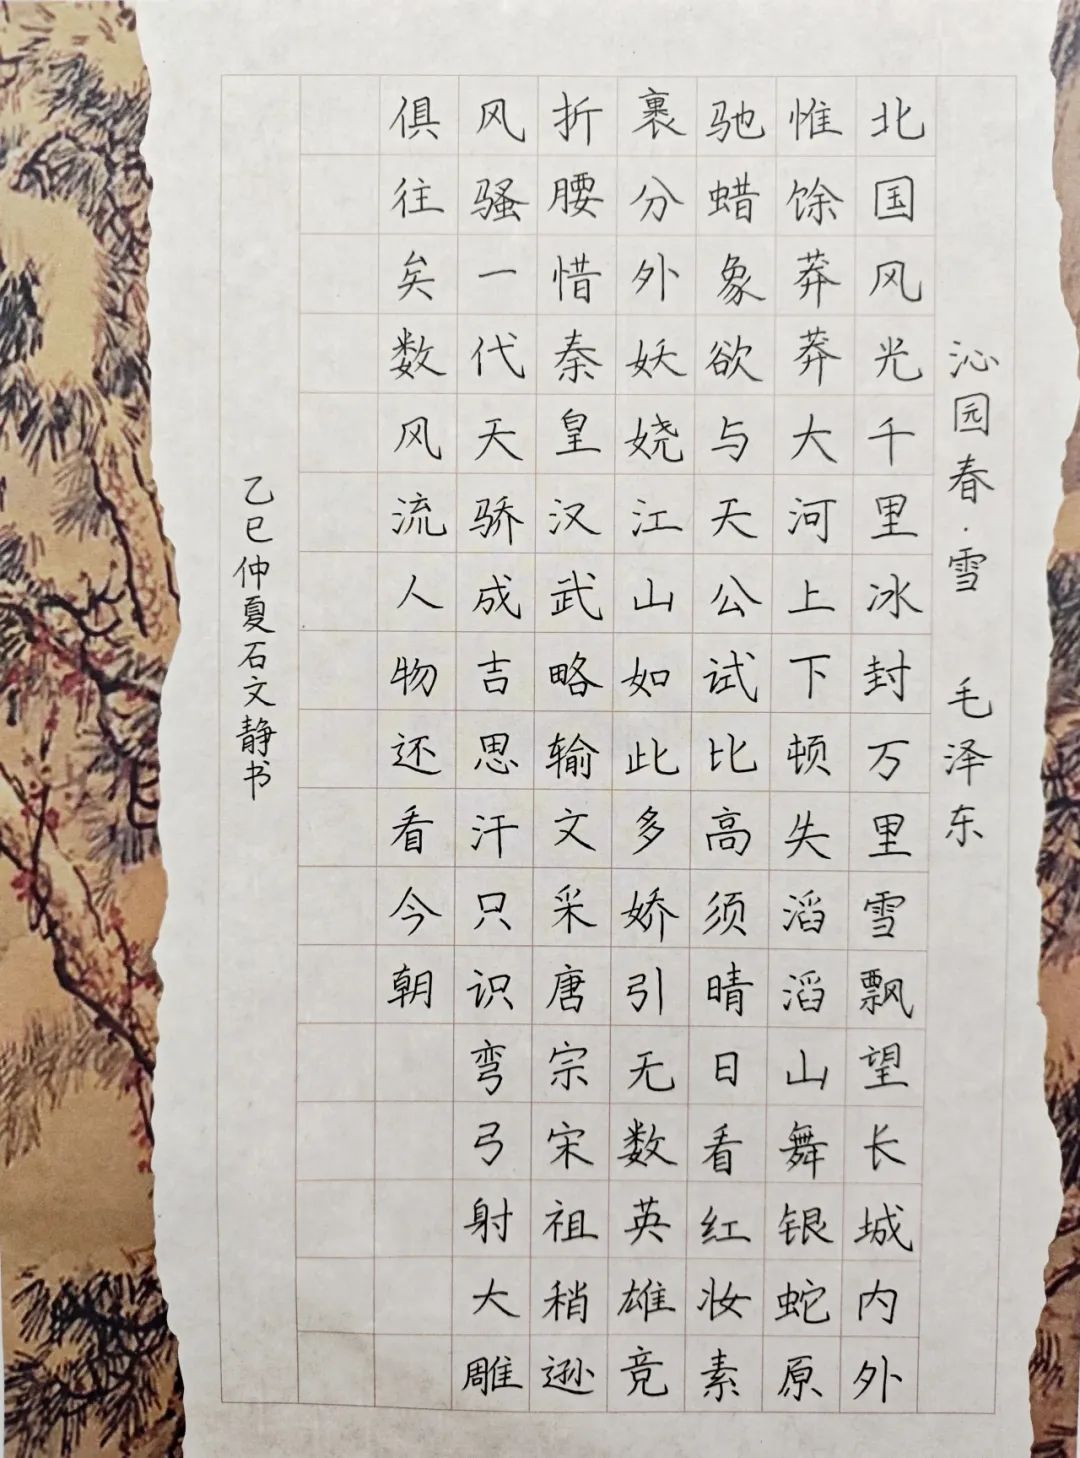 沁园春·雪 毛泽东
北国风光千里冰封万里雪飘望长城内外
惟馀莽莽大河上下顿失滔滔山舞银蛇原
驰蜡象欲与天公试比高须晴日看红妆素
裹分外妖娆江山如此多娇引无数英雄竞
折腰惜秦皇汉武略输文采唐宗宋祖稍逊
风骚一代天骄成吉思汗只识弯弓射大雕
俱往矣数风流人物还看今朝
乙巳仲夏石文静书